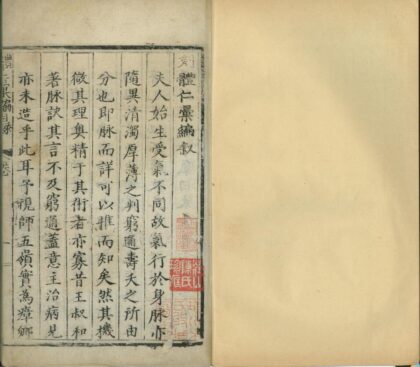 刻體仁彙編敘
夫人始生受氣不同故氣行於身脉亦
隨異清濁厚薄之判窮通壽夭之所由
分也即脉而詳可以推而知矣然其機
微其理奥精于其術者亦寡昔王叔和
著脉訣其言不及窮通蓋意主治病見
亦未造乎此耳予視師五嶺實為瘴鄉